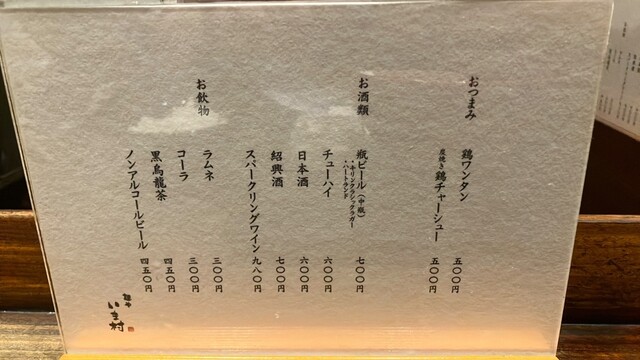 おつまみ
鶏ワンタン 五〇〇円
炭焼き鶏チャーシュー 五〇〇円
お酒類
瓶ビール(中瓶) 七〇〇円
・キリンクラシックラガー
・ハートランド
チューハイ 六〇〇円
日本酒 六〇〇円
紹興酒 七〇〇円
スパークリングワイン 九八〇円
お飲物
ラムネ 三〇〇円
コーラ 三〇〇円
黒烏龍茶 四五〇円
ノンアルコールビール 四五〇円
いま村